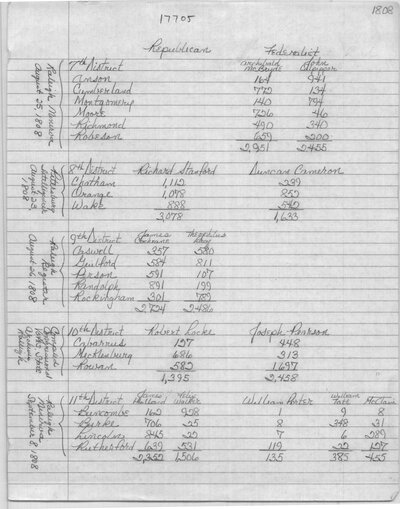 1808
17705
Republican Federalist
7th District Archibald McBryde John Culpepper
Anson 164 941
Cumberland 772 134
Montgomery 140 794
Moore 726 46
Richmond 490 340
Robeson 659 200
2,951 2455
Raleigh Minerva
August 25, 1808
8th District Richard Stanford Duncan Cameron
Chatham 1,112 239
Orange 1,078 852
Wake 888 542
3,078 1,633
Petersburg Intelligencer
August 23, 1808
9th District James Cochrane Theophilus Lacy
Caswell 357 580
Guilford 584 811
Person 591 107
Randolph 891 199
Rockingham 301 789
2,724 2,486
Raleigh Register
August 26, 1808
10th District Robert Locke Joseph Pearson
Cabarrus 127 448
Mecklenburg 686 313
Rowan 582 1,697
1,395 2,458
Compiled Congressional Vote, State
Raleigh
11th District James Holland Felix Walker William Porter William Tate McClain
Buncombe 162 928 1 9 8
Burke 706 25 8 348 31
Lincoln 845 22 7 6 289
Rutherford 639 531 119 22 127
2,352 1,506 135 385 455
Raleigh Minerva
September 8, 1808